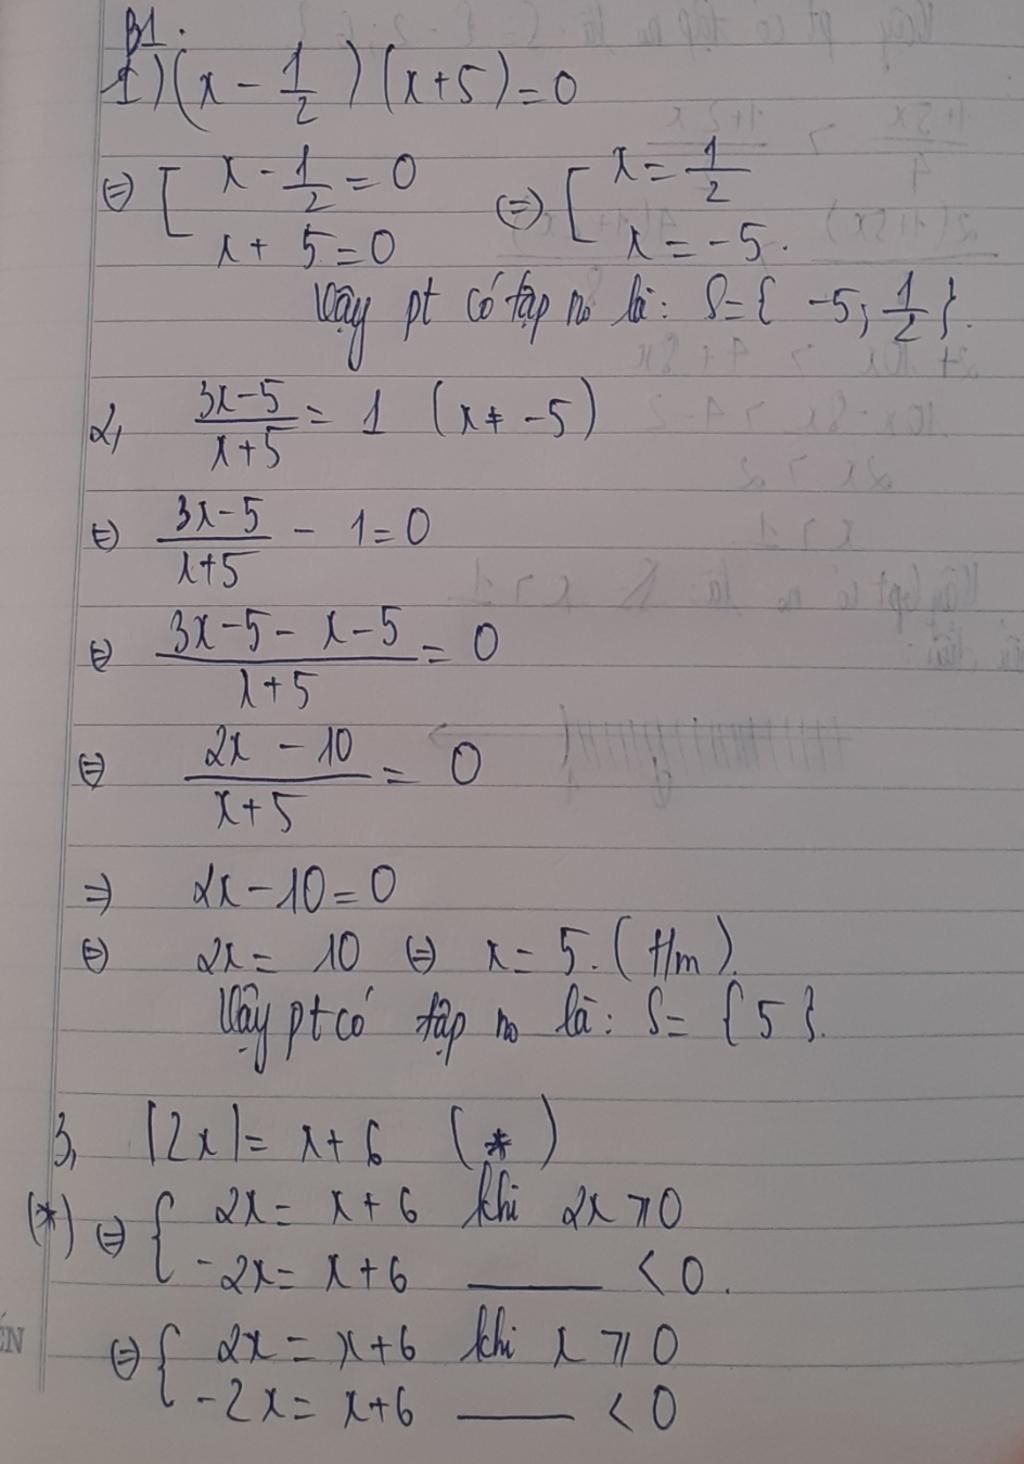 B1.
1) (x - 1/2) (x+5) = 0
⇔ [ x - 1/2 = 0 ⇔ [ x = 1/2
x + 5 = 0 x = -5.
Vậy pt có tập no là: S = { -5; 1/2 }.
2, (3x-5)/(x+5) = 1 (x ≠ -5)
⇔ (3x-5)/(x+5) - 1 = 0
⇔ (3x-5-x-5)/(x+5) = 0
⇔ (2x - 10)/(x+5) = 0
⇒ 2x - 10 = 0
⇔ 2x = 10 ⇔ x = 5. (t/m).
Vậy pt có tập no là: S = { 5 }.
3, |2x| = x + 6 (*)
(*) ⇔ { 2x = x + 6 khi 2x ⩾ 0
-2x = x + 6 —— < 0.
⇔ { 2x = x + 6 khi x ⩾ 0
-2x = x + 6 —— < 0